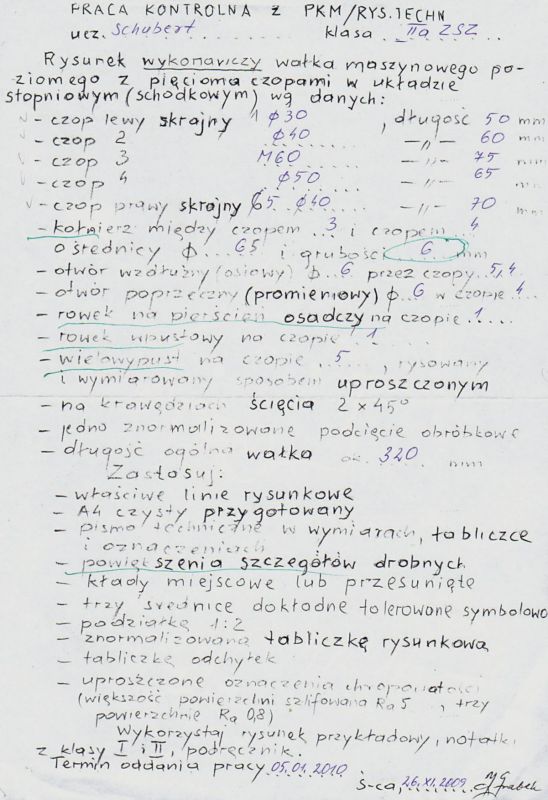 PRACA KONTROLNA z PKM/RYS.TECHN
ucz. Schubert klasa IIa ZSZ
Rysunek wykonawczy wałka maszynowego po-
ziomego z pięcioma czopami w układzie
stopniowym (schodkowym) wg danych:
- czop lewy skrajny 1 ϕ30, długość 50 mm
- czop 2 ϕ40 -"- 60 mm
- czop 3 M60 -"- 75 mm
- czop 4 ϕ50 -"- 65 mm
- czop prawy skrajny 5 ϕ40 -"- 70 mm
- kołnierz między czopem 3 i czopem 4
o średnicy ϕ 65 i grubości 6 mm
- otwór wzdłużny (osiowy) ϕ 6 przez czopy 5,4
- otwór poprzeczny (promieniowy) ϕ 6 w czopie 4
- rowek na pierścień osadczy na czopie 1
- rowek wpustowy na czopie 1
- wielowypust na czopie 5, rysowany
i wymiarowany sposobem uproszczonym
- na krawędziach ścięcia 2 x 45°
- jedno znormalizowane podcięcie obróbkowe
- długość ogólna wałka ok. 320 mm
Zastosuj:
- właściwe linie rysunkowe
- A4 czysty przygotowany
- pismo techniczne w wymiarach, tabliczce
i oznaczeniach
- powiększenia szczegółów drobnych
- kłady miejscowe lub przesunięte
- trzy średnice dokładne tolerowane symbolowo
- podziałkę 1:2
- znormalizowaną tabliczkę rysunkową
- tabliczkę odchyłek
- uproszczone oznaczenia chropowatości
(większość powierzchni szlifowana Ra 5, trzy
powierzchnie Ra 0,8)
Wykorzystaj rysunek przykładowy, notatki
z klasy I i II, podręcznik.
Termin oddania pracy 05.01.2010.
Ś-ca, 26.XI.2009